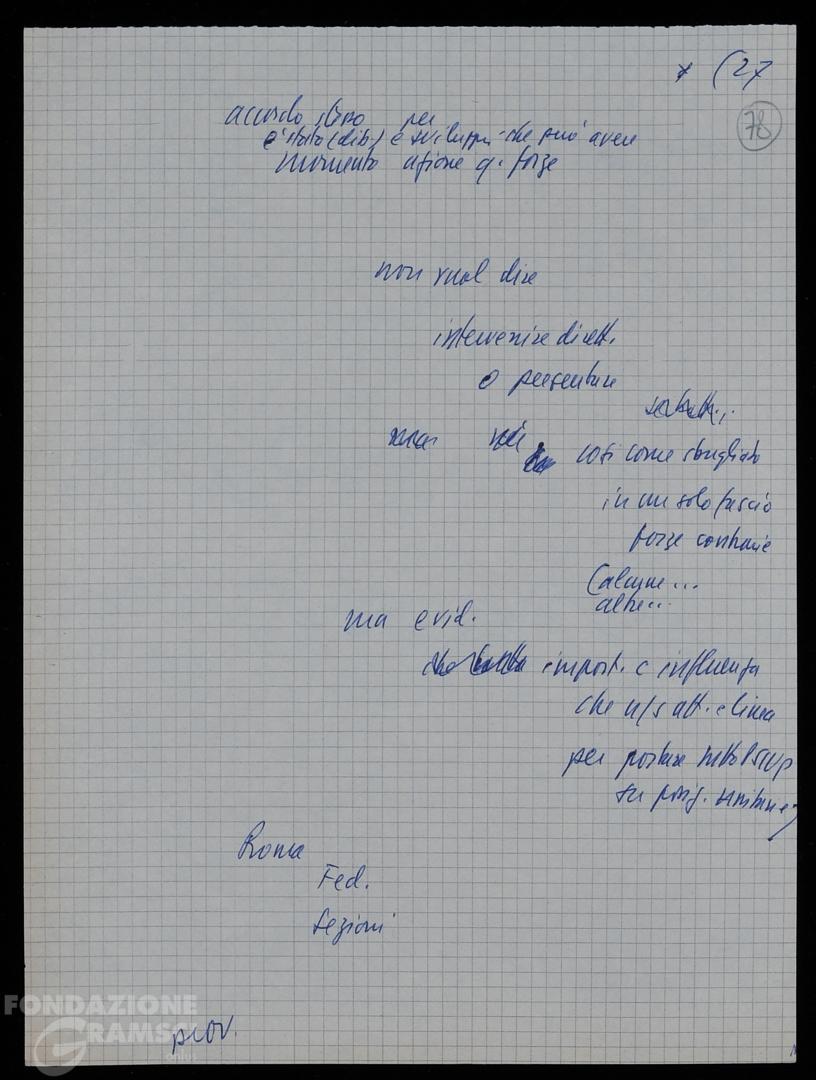 * (27
78
accordo stesso per
è stato (dib.) e sviluppi che può avere
momento azione q. forze
non vuol dire
intervenire dirett.
o presentare
ma
così come sbagliato
in un solo fascio
forze contrarie
Calcune...
altre...
ma evid.
import. e influenza
che n/s att. e linea
per portare tutto PSIUP
su posiz. unitarie
Roma
Fed.
Sezioni
prov.
FONDAZIONE
GRAMSCI
onlus